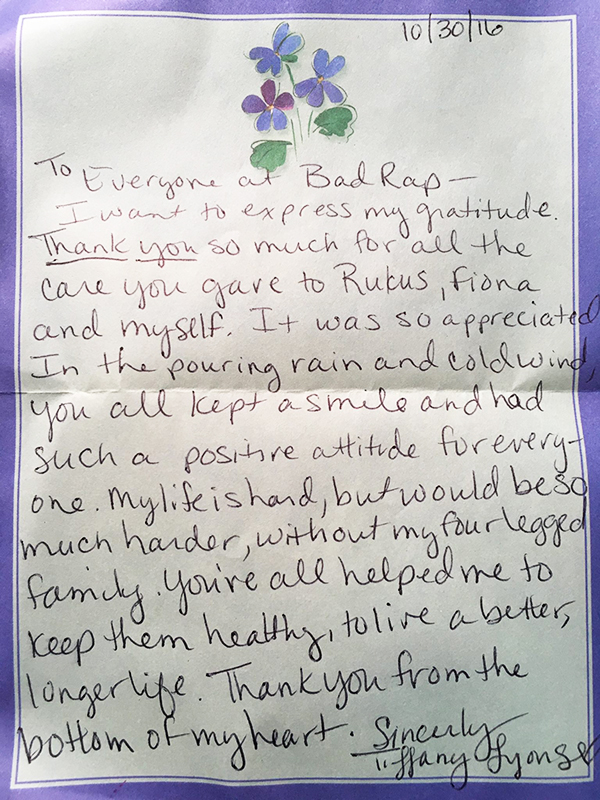 10/30/16
To Everyone at Bad Rap—
I want to express my gratitude.
Thank you so much for all the
care you gave to Rukus, Fiona
and myself. It was so appreciated
In the pouring rain and cold wind,
you all kept a smile and had
such a positive attitude for every-
one. My life is hard, but would be so
much harder, without my four legged
family. You're all helped me to
keep them healthy, to live a better,
longer life. Thank you from the
bottom of my heart. Sincerly
Tiffany Lyons